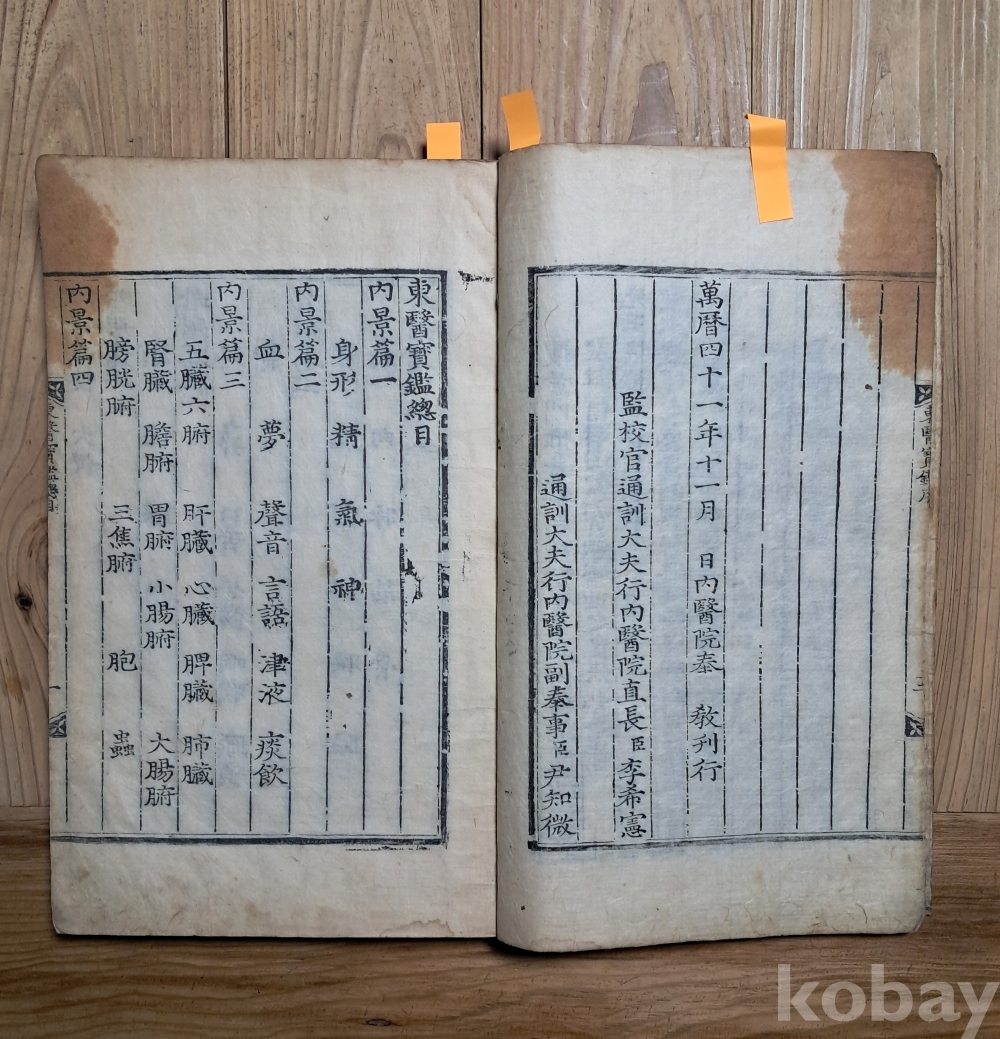 萬曆四十一年十一月 日內醫院奉 敎刊行
監校官通訓大夫行內醫院直長臣李希憲
通訓大夫行內醫院副奉事臣尹知微
東醫寶鑑總目
內景篇一
身形 精 氣 神
內景篇二
血 夢 聲音 言語 津液 痰飮
內景篇三
五臟六腑 肝臟 心臟 脾臟 肺臟
腎臟 膽腑 胃腑 小腸腑 大腸腑
膀胱腑 三焦腑 胞 蟲
內景篇四
kobay